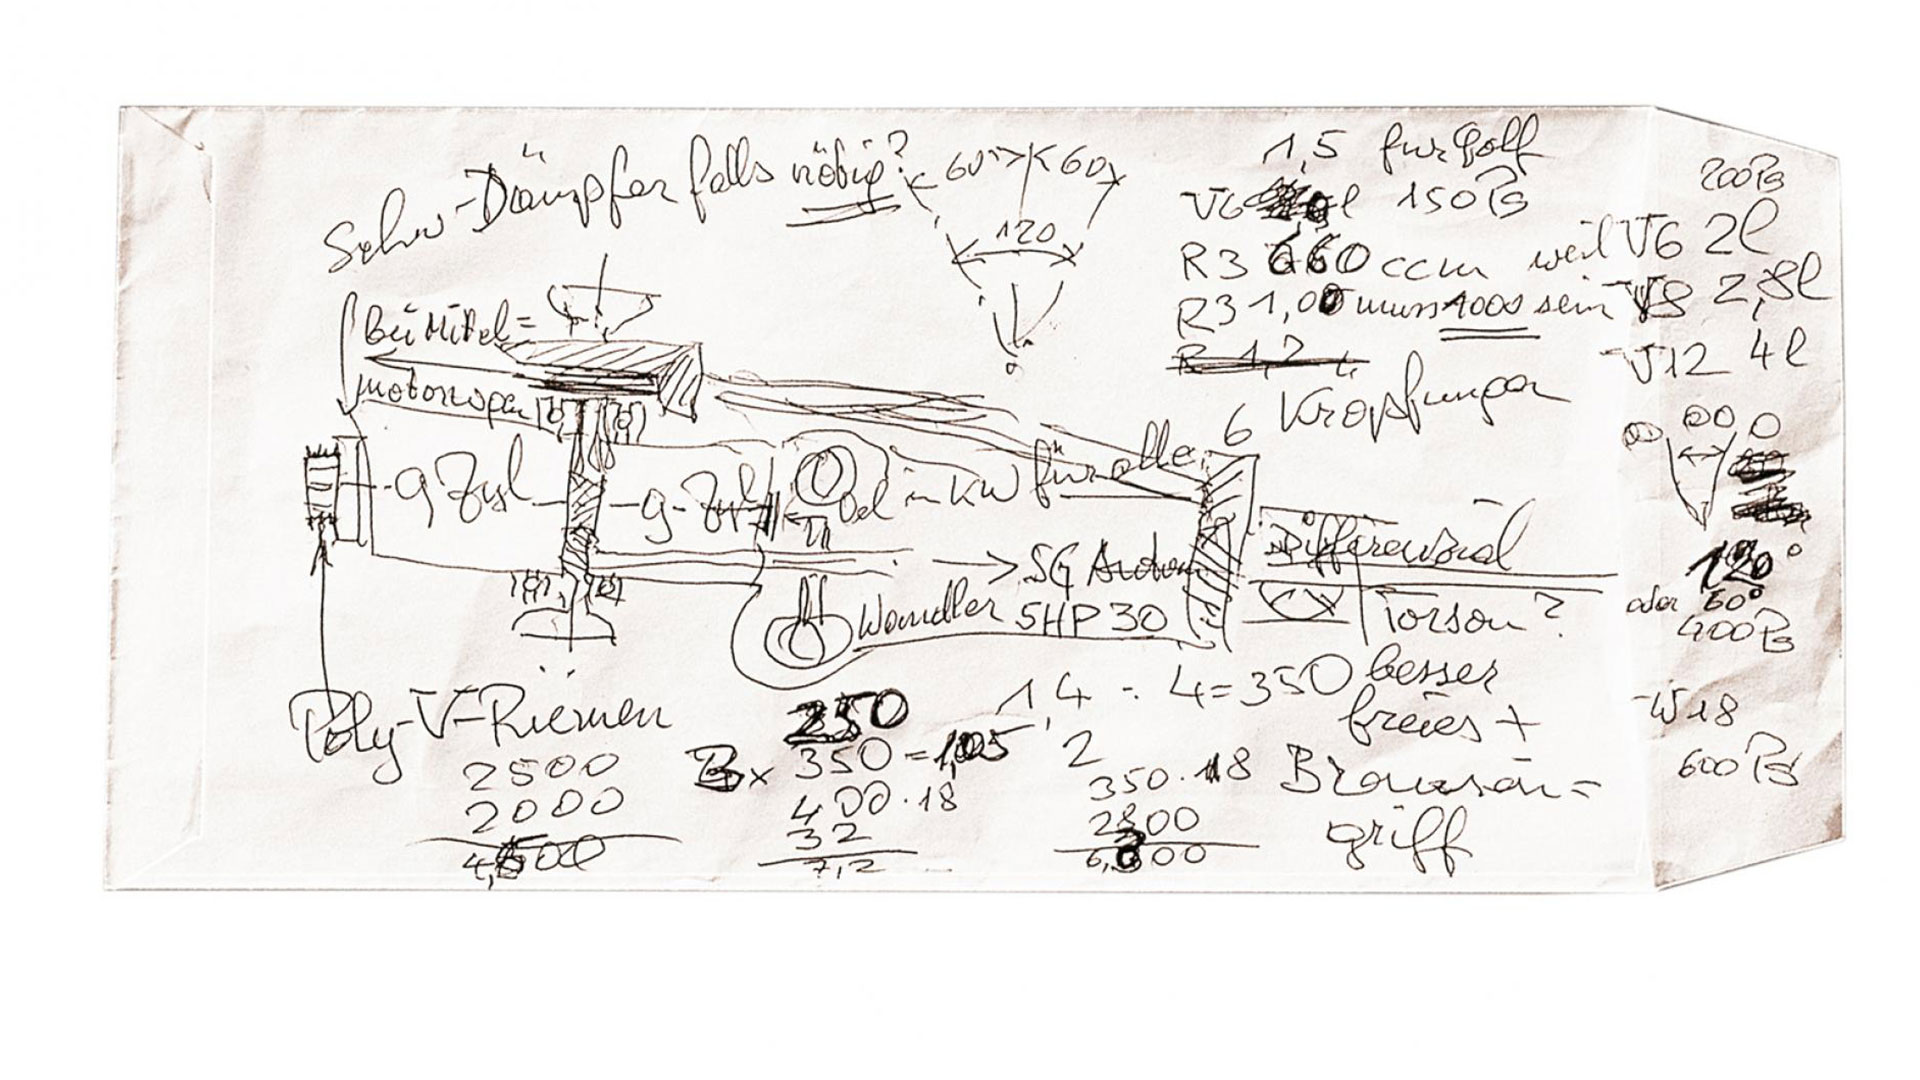 Schw-Dämpfer falls nötig?
60° 60
120
1,5 für Golf
V6 l 150 PS
R3 660 ccm weil
R3 1,00 muss 1000 sein
R 1,2 L
6 Kröpfungen
200 PS
V6 2l
V8 2,8l
V12 4l
120°
oder 60°
400 PS
W18
600 PS
bei Mittel=
motorwagen
9 Zyl
9-Zyl
für alle
SG Autom
Wandler 5HP30
Differenzial
Torsen?
besser
freies +
Bremsen=
griff
Poly-V-Riemen
2500
2000
4,500
250
Bx 350 = 1,05
400.18
32
7,2
1,4 : 4=350
2
350.18
2800
6,300